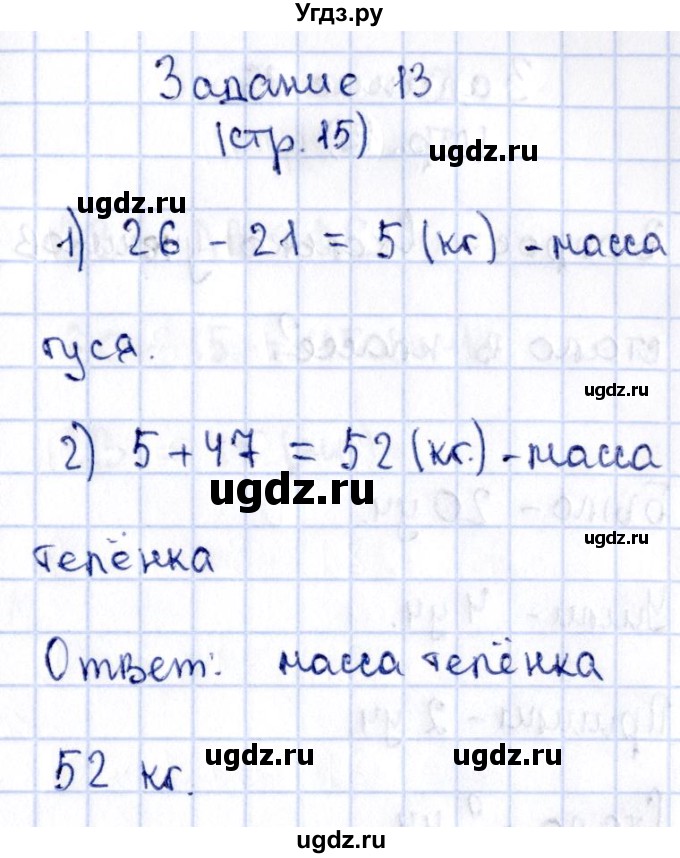 Угдз.ру
Задание 13
(стр. 15)
ugdz.ru
ugdz.ru
1) 26 - 21 = 5 (кг) - масса
гуся.
ugdz.ru
2) 5 + 47 = 52 (кг.) - масса
ugdz.ru
ugdz.ru
телёнка
Ответ: масса телёнка
52 кг.
ugdz.ru
ugdz.ru
ugdz.ru